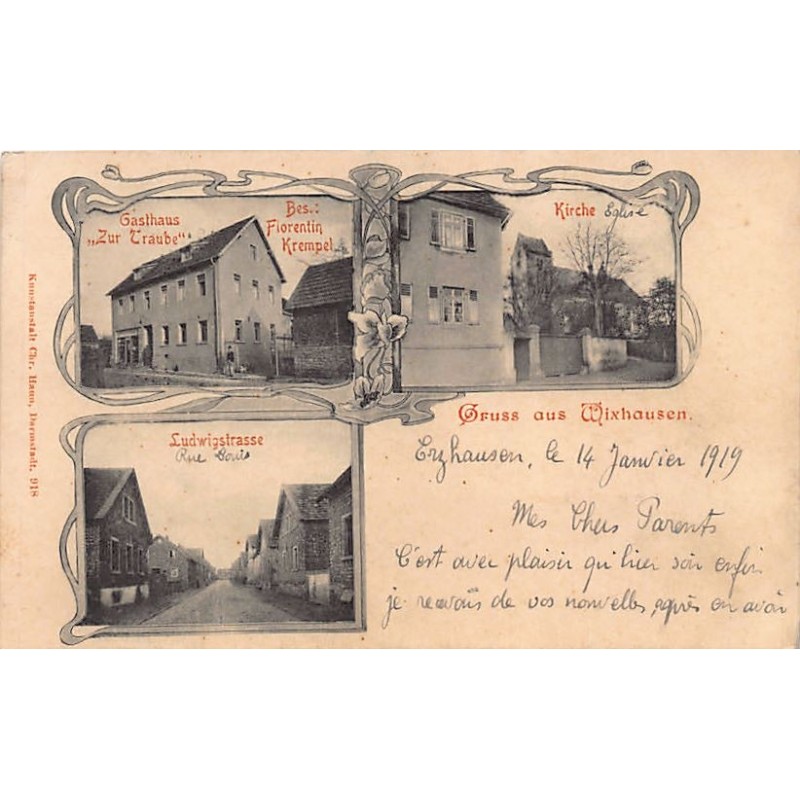 Gasthaus
„Zur Traube“.
Bes.:
Florentin
Krempel
Kirche Eglise
Ludwigstrasse
Rue Louis
Kunstanstalt Chr. Haun, Darmstadt. 918
Gruss aus Wixhausen.
Erzhausen, le 14 Janvier 1919
Mes Chers Parents
C'est avec plaisir qu'hier soir enfin
je recevais de vos nouvelles, après en avoir